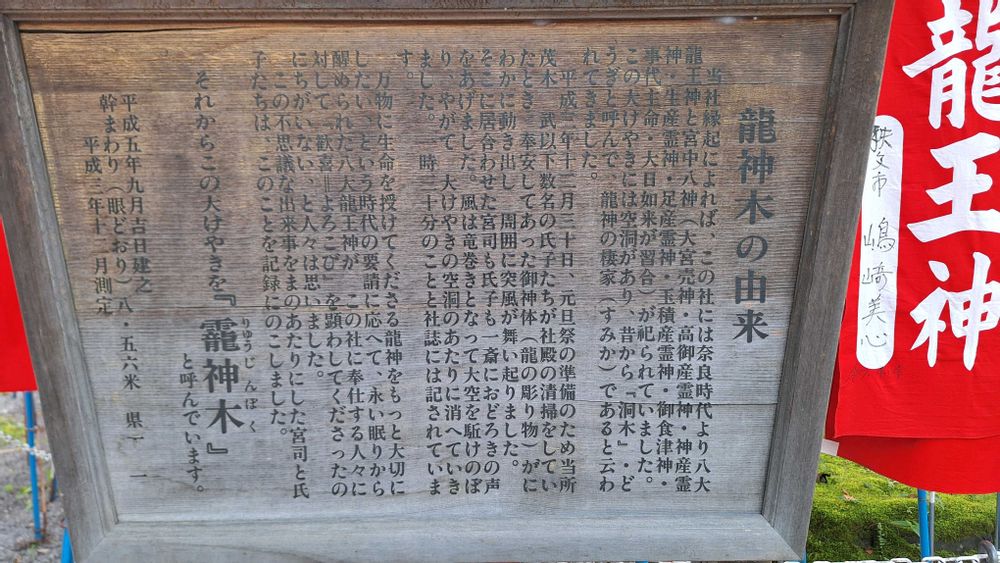 龍神木の由来
当社縁起によれば、この社には奈良時代より八大
龍王神と宮中八神(大宮売神・高御産霊神・神産霊
神・生産霊神・足産霊神・玉積産霊神・御食津神・
事代主命・大日如来が習合)が祀られていました。
この大けやきには空洞があり、昔から「洞木」・ど
うぎと呼んで 龍神の棲家(すみか)であると云わ
れてきました。
平成 年十二月三十日、元旦祭の準備のため当所
茂木 武以下数名の氏子たちが社殿の清掃をしてい
たとき、奉安してあった御神体(龍の彫り物)がに
わかに動き出し、周囲に突風が舞い起りました。
そこに居合わせた宮司も氏子も一斎におどろきの声
をあげました。風は竜巻きとなって大空を駈けのぼ
り、やがて、大けやきの空洞のあたりに消へていき
ました。 時 十分のことと社誌には記されていま
す。
万物に生命を授けてくださる龍神をもっと大切に
したい、という時代の要請に応へて、永い眠りから
醒められた八大龍王神が、この社に奉仕する人々に
対して「歓喜=よろこび」を顕わしてくださったの
にちがいない、と人々は思いました。
この不思議な出来事をまのあたりにした宮司と氏
子たちは、このことを記録にのこしました。
それからこの大けやきを『靇神木』と呼んでいます。
りゅうじんぼく
平成五年九月吉日建之
幹まわり(眼どおり)八・五六米 県 一
平成三年十一月測定
龍王神
秩父市 嶋﨑美心